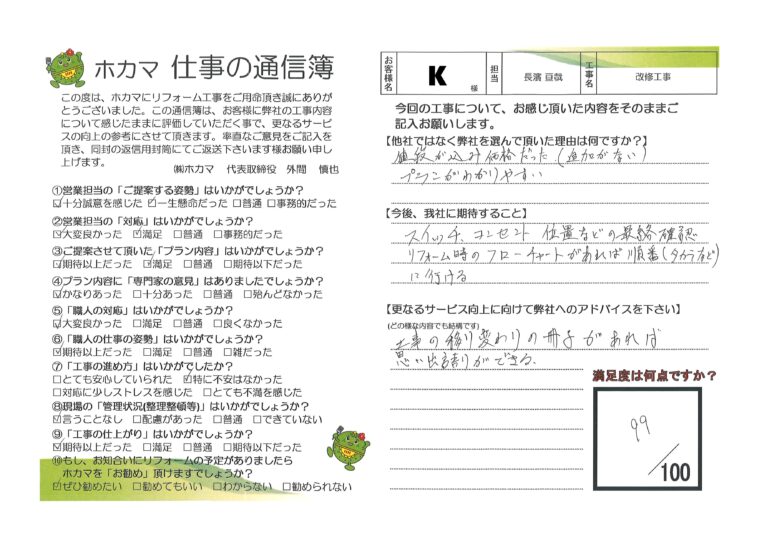 ホカマ 仕事の通信簿
この度は、ホカマにリフォーム工事をご用命頂き誠にありが
とうございました。この通信簿は、お客様に弊社の工事内容
について感じたままに評価していただく事で、更なるサービ
スの向上の参考にさせて頂きます。率直なご意見をご記入を
頂き、同封の返信用封筒にてご返送下さいます様お願い申し
上げます。
㈱ホカマ 代表取締役 外間 慎也
①営業担当の「ご提案する姿勢」はいかがでしょうか?
☑十分誠意を感じた ☑一生懸命だった □普通 □事務的だった
②営業担当の「対応」はいかがでしょうか?
☑大変良かった □満足 □普通 □事務的だった
③ご提案させて頂いた「プラン内容」はいかがでしょうか?
☑期待以上だった ☑満足 □普通 □期待以下だった
④プラン内容に「専門家の意見」はありましたでしょうか?
☑かなりあった □十分あった □普通 □殆んどなかった
⑤「職人の対応」はいかがでしょうか?
☑大変良かった □満足 □普通 □良くなかった
⑥「職人の仕事の姿勢」はいかがでしょうか?
☑期待以上だった □満足 □普通 □雑だった
⑦「工事の進め方」はいかがでしたか?
□とても安心していられた ☑特に不安はなかった
□対応に少しストレスを感じた □とても不満を感じた
⑧現場の「管理状況(整理整頓等)」はいかがでしょうか?
☑言うことなし □配慮があった □普通 □できていない
⑨「工事の仕上がり」はいかがでしょうか?
☑期待以上だった □満足 □普通 □期待以下だった
⑩もし、お知合いにリフォームの予定がありましたら
ホカマを「お勧め」頂けますでしょうか?
☑ぜひ勧めたい □勧めてもいい □わからない □勧められない
お客様名 K 様 担当 長濱 亘哉 工事名 改修工事
今回の工事について、お感じ頂いた内容をそのままご
記入お願いします。
【他社ではなく弊社を選んで頂いた理由は何ですか?】
値段が込み価格だった(追加がない)
プランがわかりやすい
【今後、我社に期待すること】
スイッチ、コンセント位置などの最終確認
リフォーム時のフローチャートがあれば順番(タカラなど)
に行ける
【更なるサービス向上に向けて弊社へのアドバイスを下さい】
(どの様な内容でも結構です)
工事の移り変わりの冊子があれば
思い出創りができる.
満足度は何点ですか?
99
/100